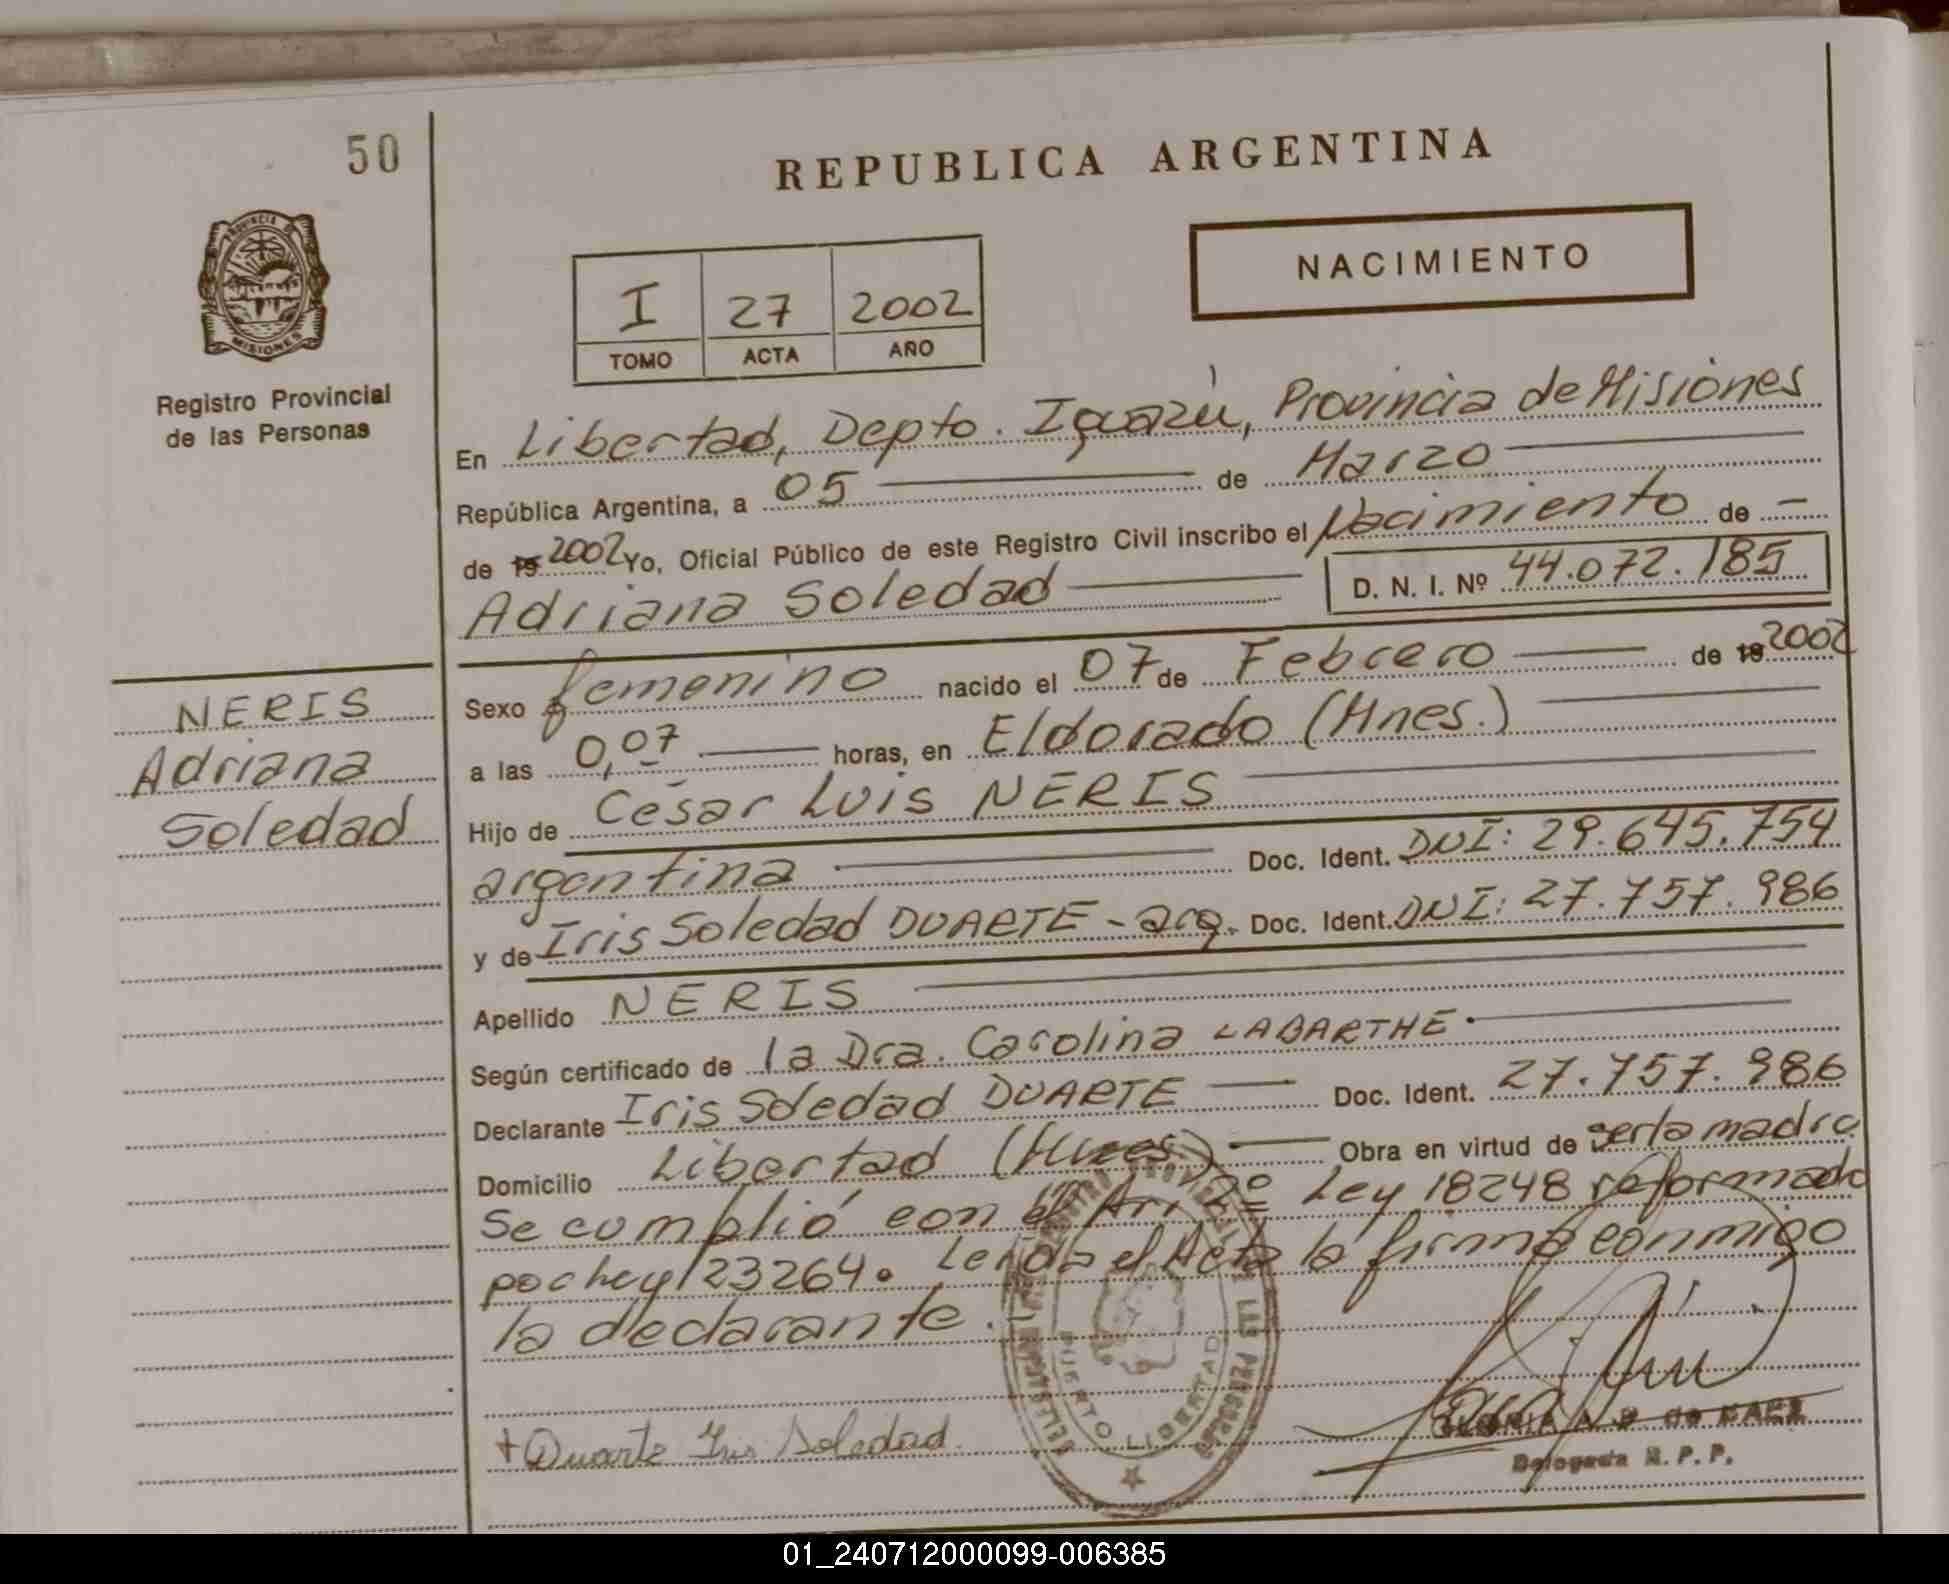 50
REPUBLICA ARGENTINA
NACIMIENTO
I 27 2002
TOMO ACTA AÑO
PROVINCIA DE
MISIONES
Registro Provincial
de las Personas
En Libertad, Depto. Iguazú, Provincia de Misiones
República Argentina, a 05 de Marzo
de 19 2002 Yo, Oficial Público de este Registro Civil inscribo el Nacimiento de —
Adriana Soledad
D. N. I. Nº 44.072.185
NERIS
Adriana
Soledad
Sexo femenino nacido el 07 de Febrero de 19 2002
a las 0,07 horas, en Eldorado (Mnes.)
Hijo de César Luis NERIS
argentina Doc. Ident. DNI: 29.645.754
y de Iris Soledad DUARTE - arg. Doc. Ident. DNI: 27.757.986
Apellido NERIS
Según certificado de la Dra. Carolina LABARTHE.
Declarante Iris Soledad DUARTE Doc. Ident. 27.757.986
Domicilio Libertad (Mnes) Obra en virtud de ser la madre
Se cumplió con el Art 2º Ley 18248 reformado
por Ley 23264. Leída el Acta la firma conmigo
la declarante.
PUERTO LIBERTAD
+ Duarte Iris Soledad
Delegada R. P. P.
01_240712000099-006385